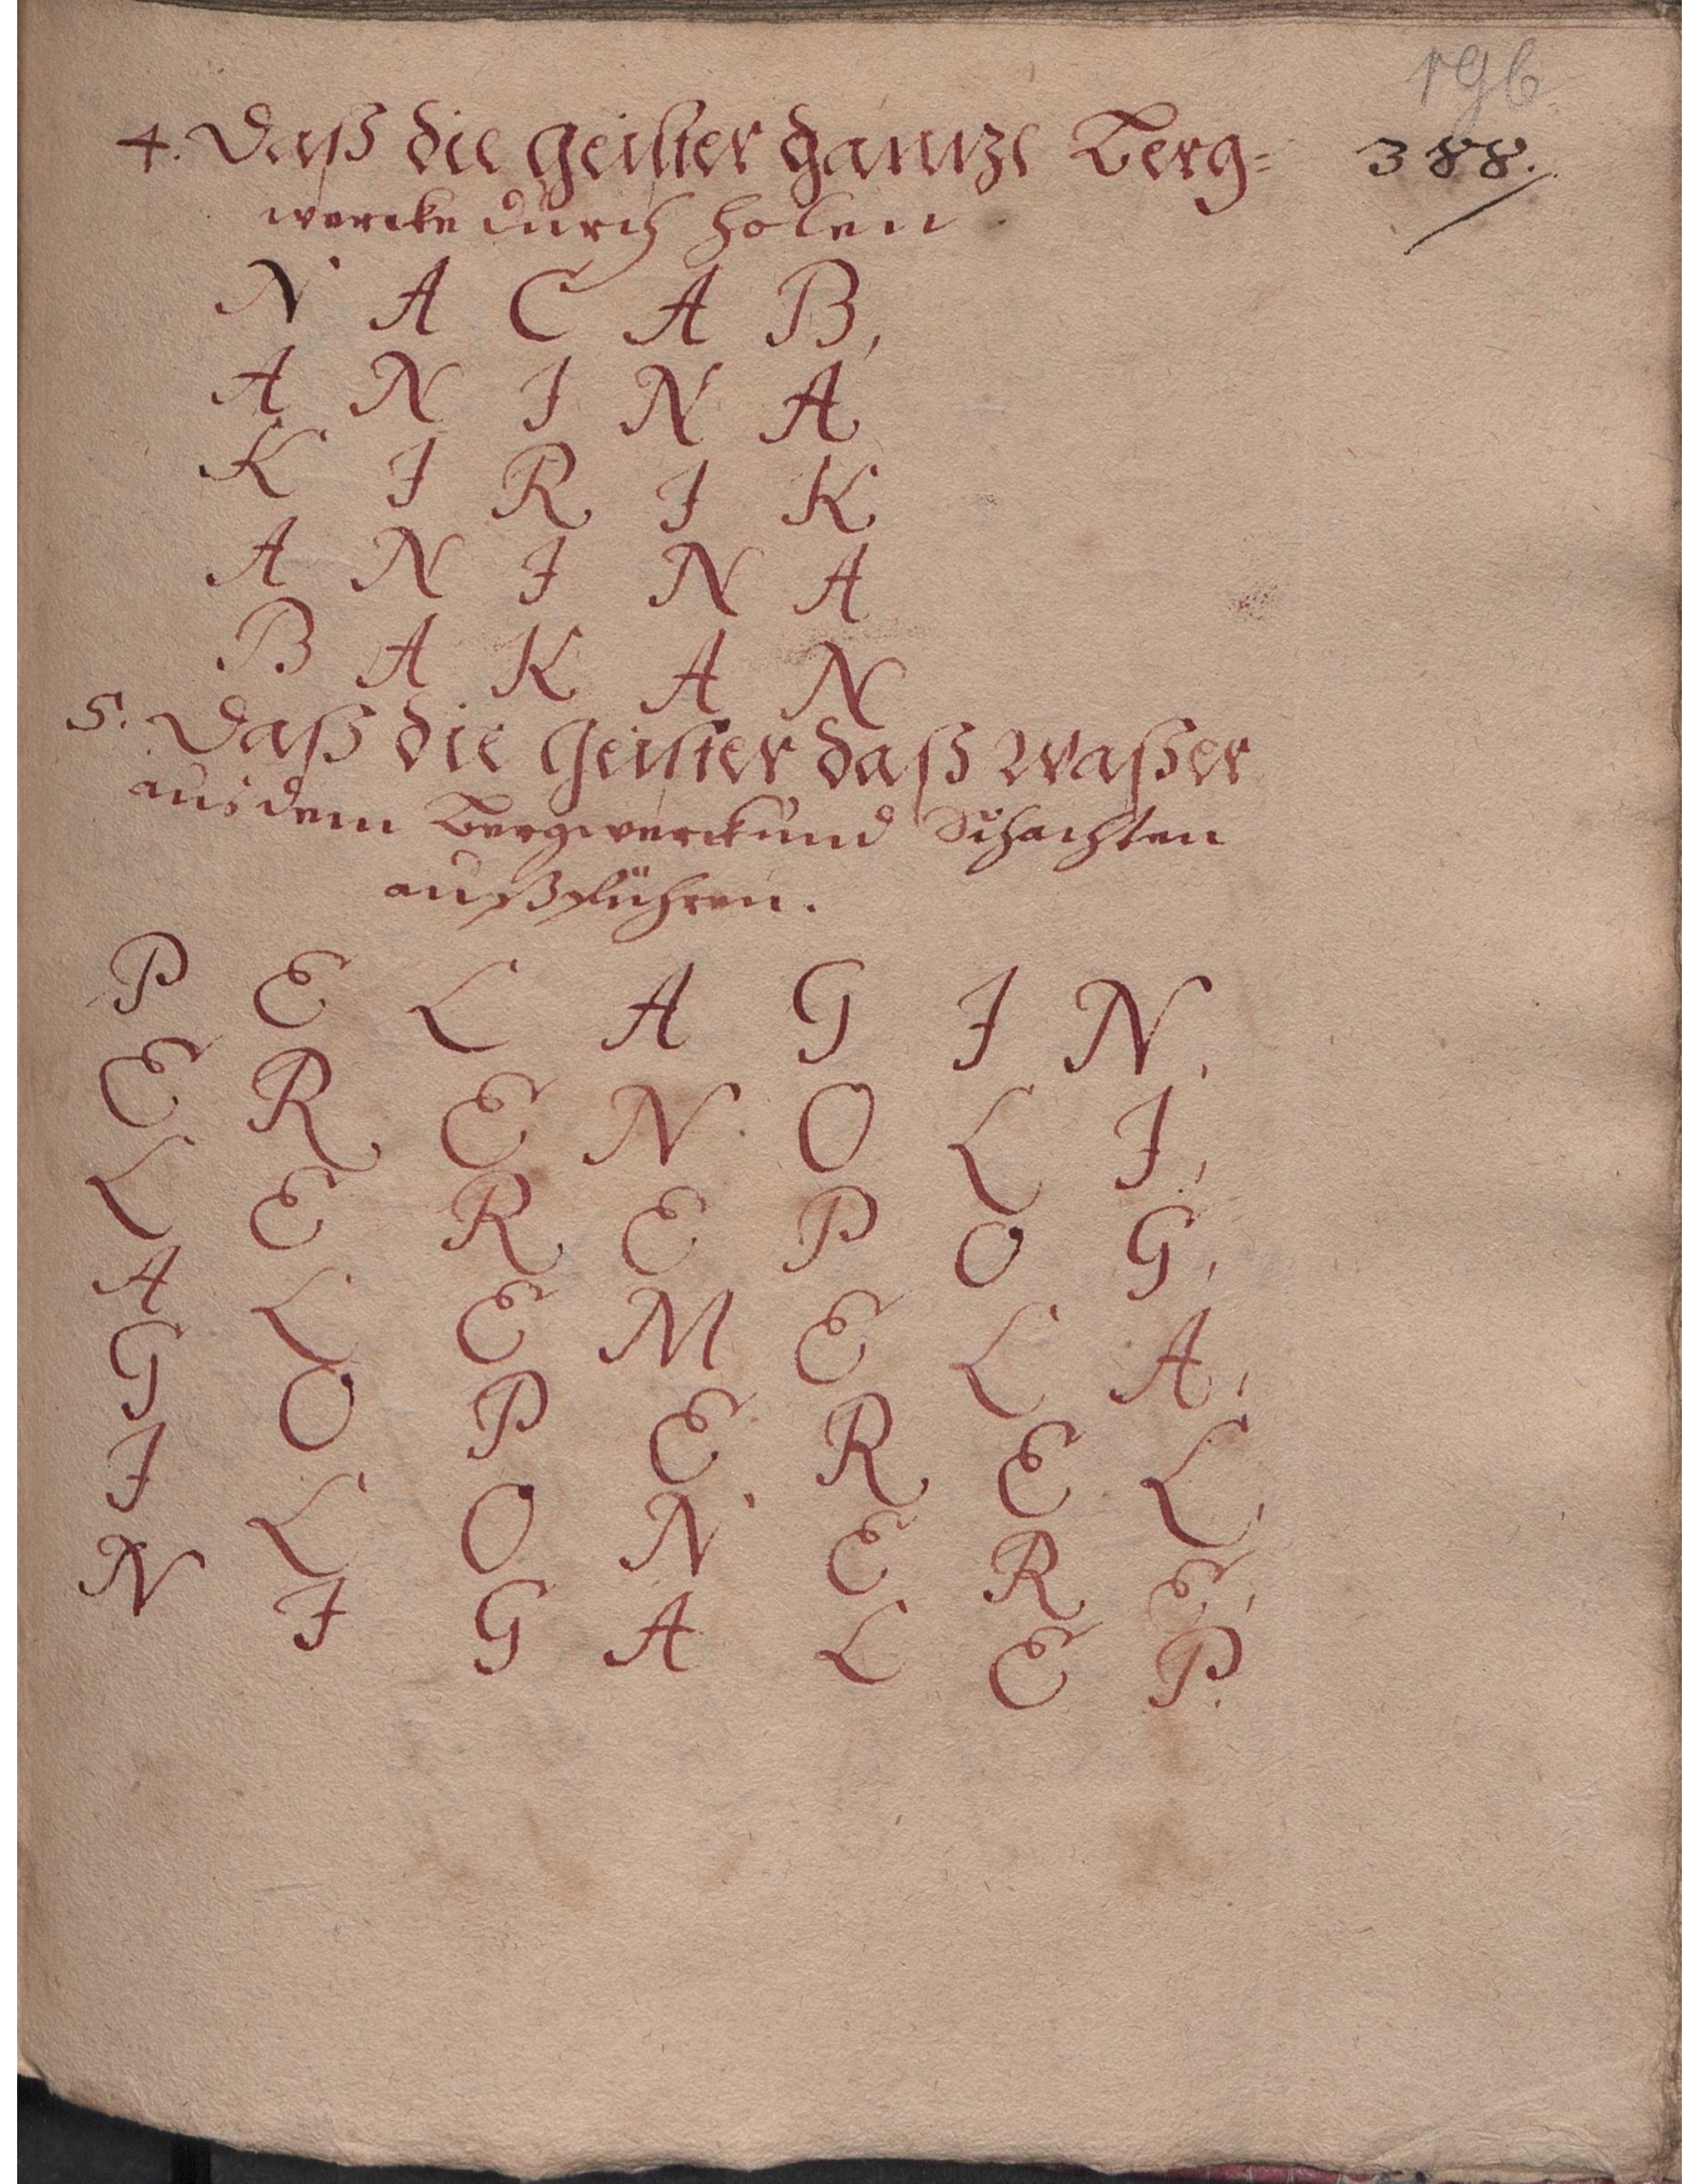 196
4. Daß die geister gantze Berg= 388.
wercke durch holen
N A C A B,
A N I N A
K I R I K
A N I N A
B A K A N
5. Daß die geister daß Waßer
aus dem Bergwerck und Schachten
außführen.
P E L A G I N,
E R E N O L I,
L E R E P O G,
A L E M E L A,
G O P E R E L,
I L O N E R E,
N I G A L E P.